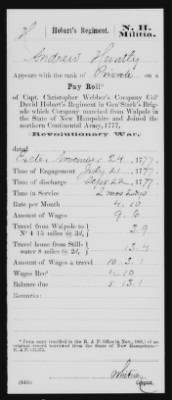 H | Hobart's Regiment. | N. H. Militia.
Andrew Huntly
Appears with the rank of Private on a
Pay Roll*
of Capt. Christopher Webber's Company Col°
David Hobart's Regiment in Gen¹ Stark's Brig-
ade which Company marched from Walpole in
the State of New Hampshire and Joined the
northern Continental Army, 1777,
Revolutionary War,
dated
Exeter November 24, 1777.
Time of Engagement July 21, 1777
Time of discharge Sept 22, 1777
Time in Service 2 mos 2 days
Rate per Month 4.10
Amount of Wages 9.6
Travel from Walpole to
N° 4 15 miles @ 3d,
3.9
Travel home from Still-
water 8 miles @ 2d,
Amount of Wages & travel 10 3.1
Wages Rec'd 4.10
Balance due 5 13.1
Remarks:
*From copy (verified in the R. & P. Office in Nov., 1885) of an
original record borrowed from the State of New Hampshire.
Whitney
Copyist.